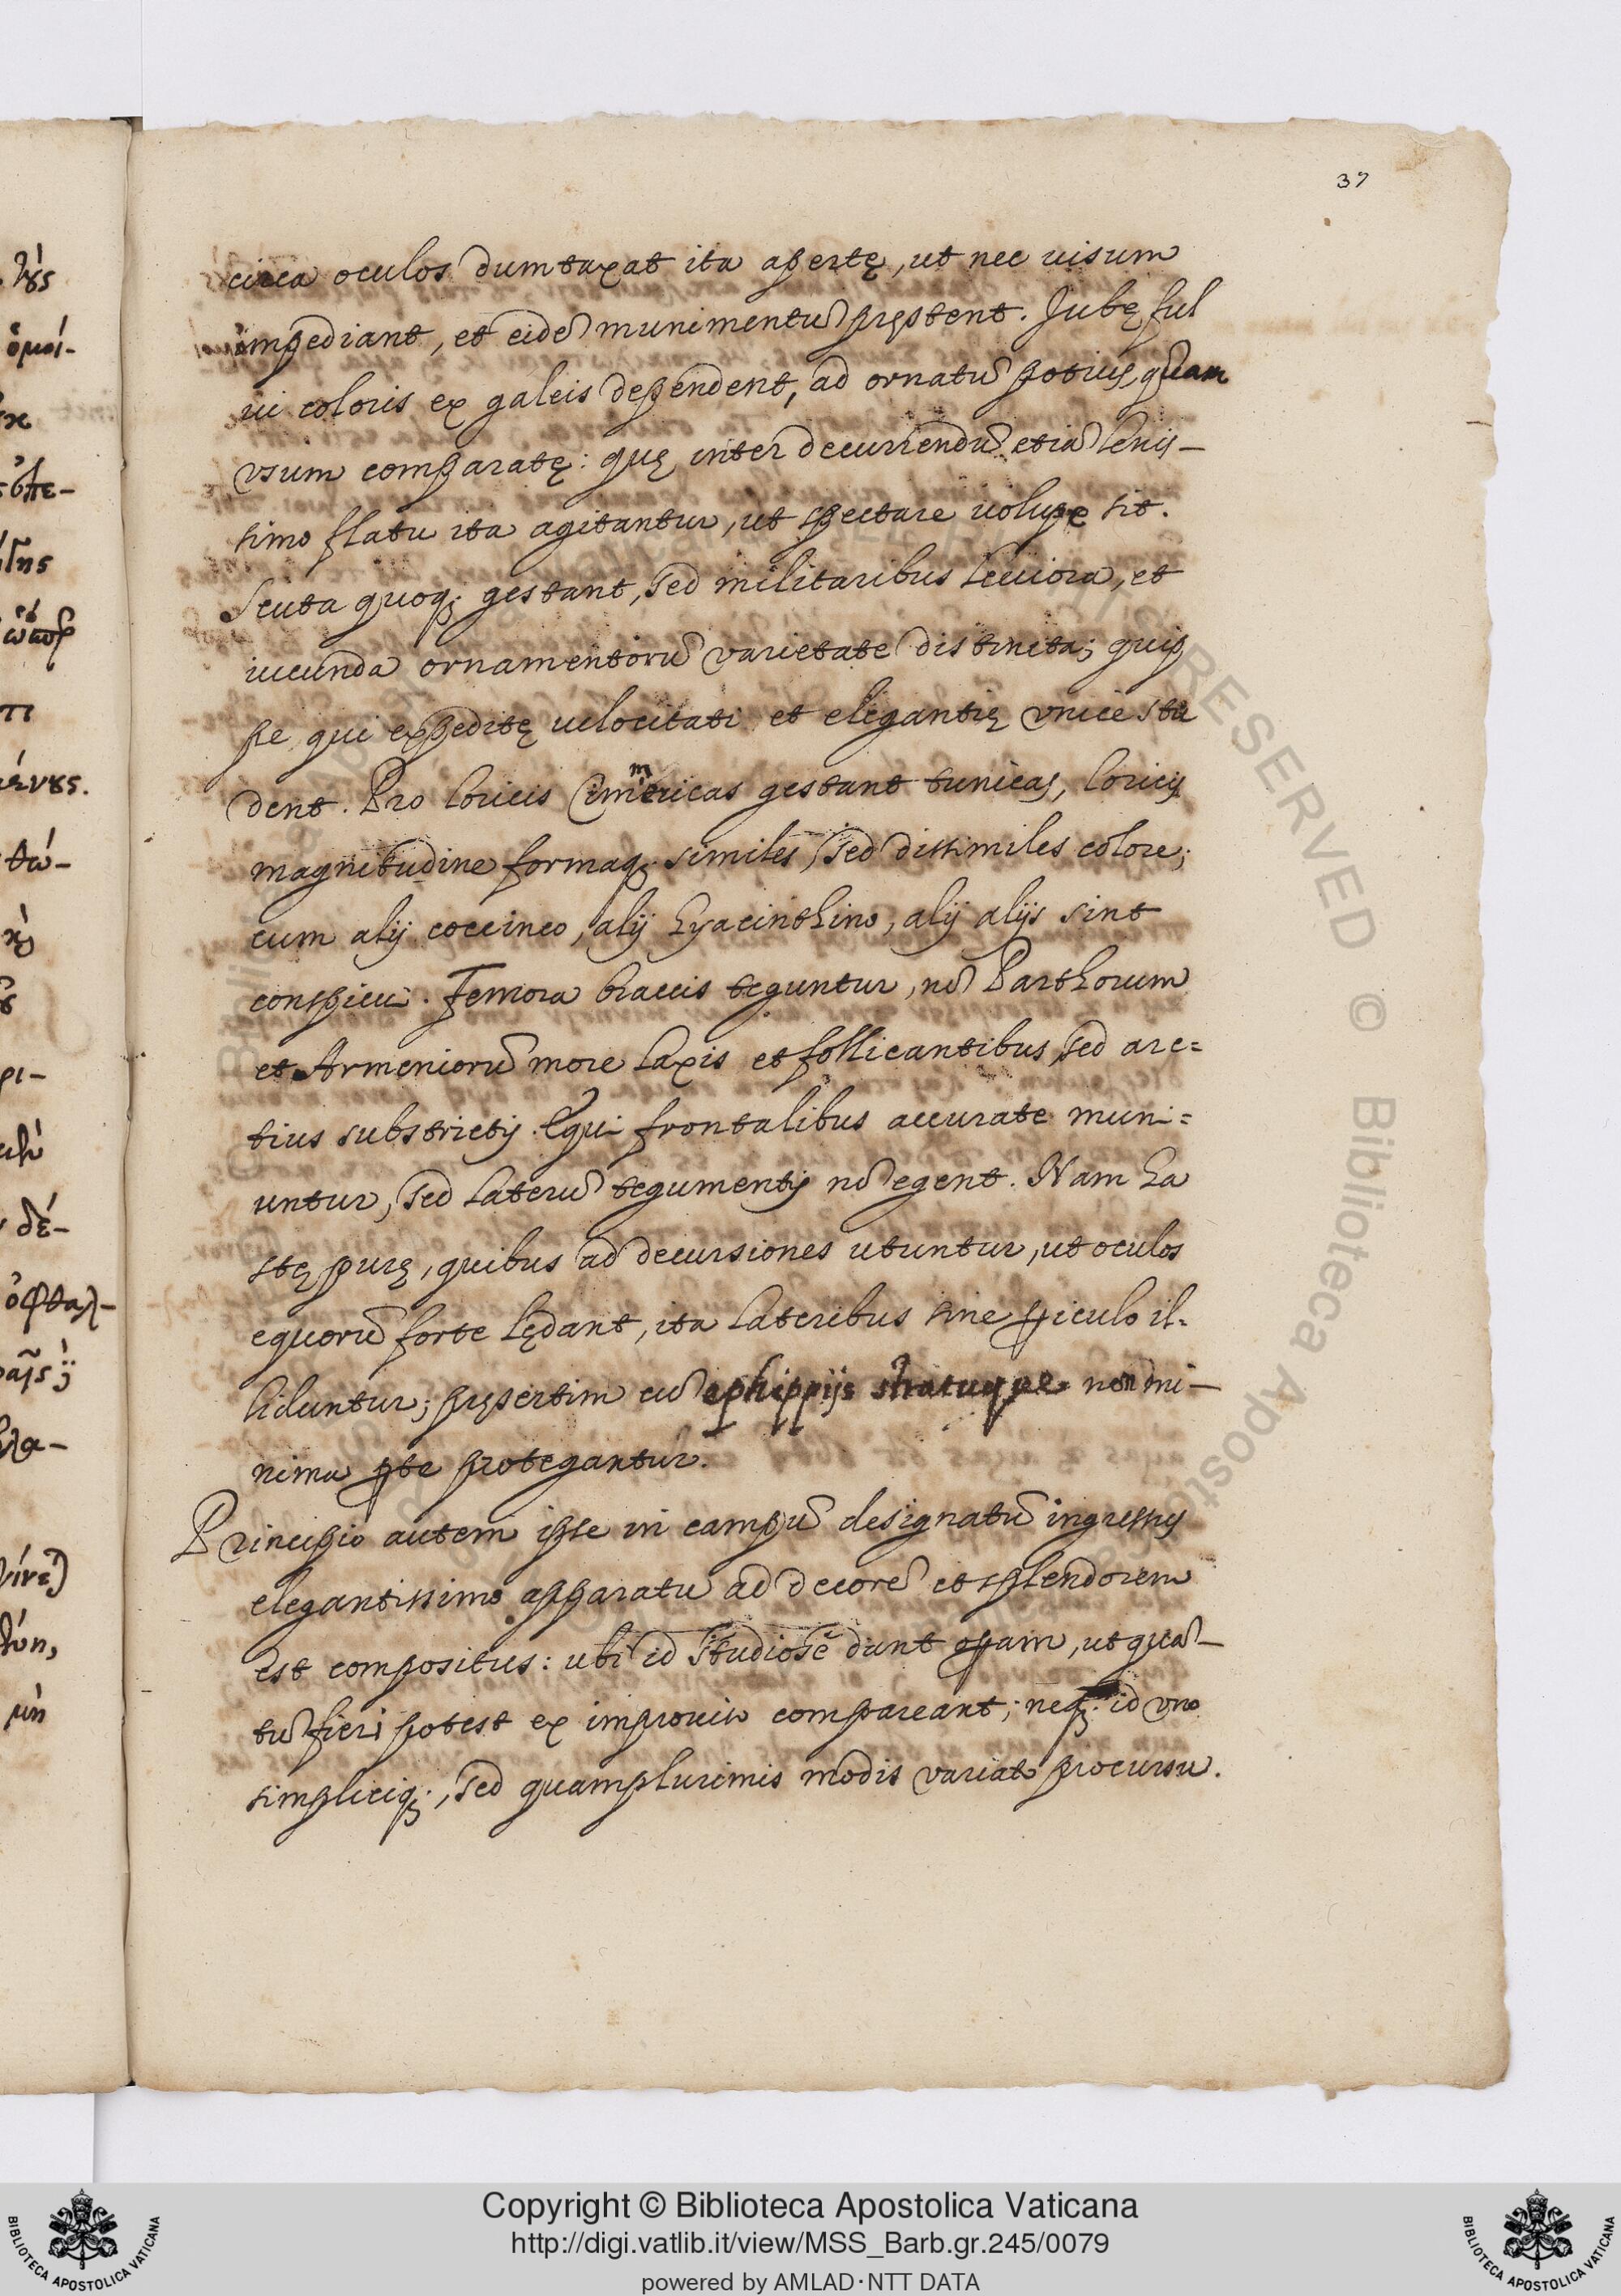 37
circa oculos dumtaxat ita apertę, ut nec uisum
impediant, et eidē munimentū pręstent. Jubę ful
ui coloris ex galeis dependent, ad ornatū potius, quam
vsum comparatę: quę inter decurrendū etiā lenis-
simo flatu ita agitantur, ut spectare volupe sit.
Scuta quoq; gestant, sed militaribus leuiora, et
iucunda ornamentorū varietate distincta; quip
pe qui expeditę uelocitati et elegantię vnice stu
dent. Pro loricis Cimmericas gestant tunicas, loricis
magnitudine formaq; similes, sed dissimiles colore;
cum alij coccineo, alij hyacinthino, alij alijs sint
conspicui. Femora braccis teguntur, nō Parthorum
et Armeniorū more laxis et follicantibus, sed arc=
tius substrictis. Equi frontalibus accurate muni=
untur, sed laterū tegumentis nō egent. Nam ha
stę purę, quibus ad decursiones utuntur, ut oculos
equorū forte lędant, ita lateribus sine ꝑiculo il-
liduntur; pręsertim cū ephippijs stratuque non mi-
nima ꝑte protegantur.
Principio autem ipse in campū designatū ingressus
elegantissimo apparatu ad decorē et splendorem
est compositus: ubi id studiosē dant oꝑam, ut quā-
tū fieri potest ex improuiso compareant; neq; id vno
simpliciq;, sed quamplurimis modis variato procursu.
λύς
ὁμοί-
θώ-
ρι-
δέ-
ὀφθαλ-
μὴ
Copyright © Biblioteca Apostolica Vaticana
http://digi.vatlib.it/view/MSS_Barb.gr.245/0079
powered by AMLAD·NTT DATA
BIBLIOTECA APOSTOLICA VATICANA
BIBLIOTECA APOSTOLICA VATICANA